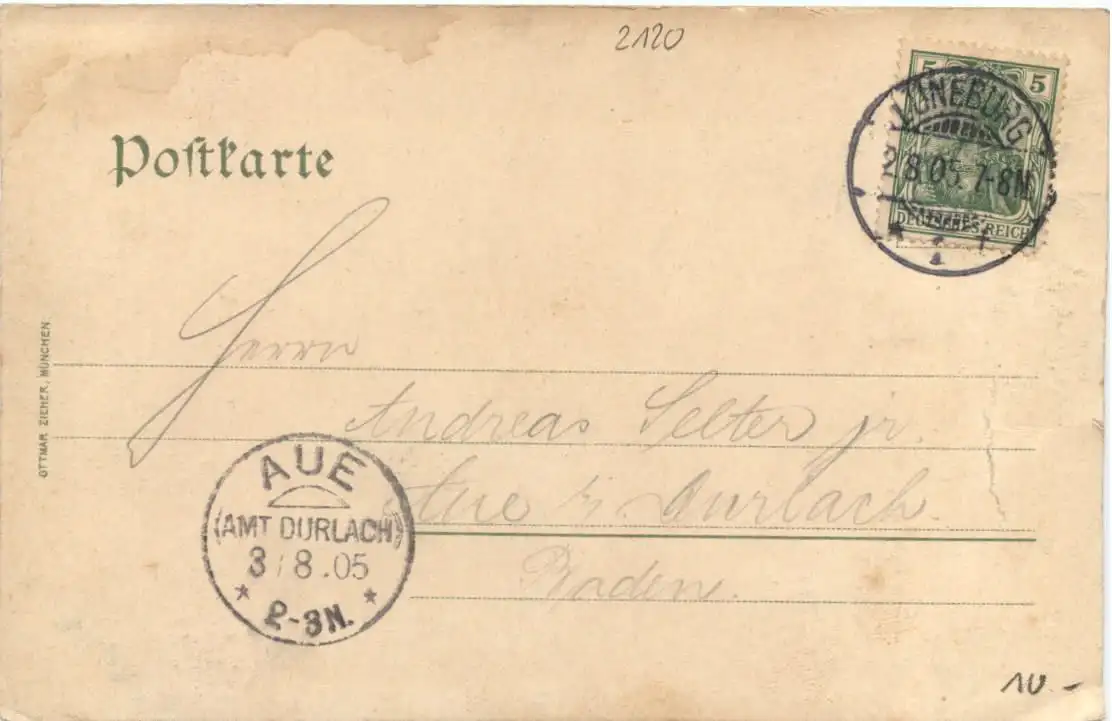 2120
5 5
LÜNEBURG
2.8.05.7-8N
DEUTSCHES REICH
Postkarte
Herrn
Andreas Selter jr.
Aue b/ Durlach.
Baden.
OTTMAR ZIEHER, MÜNCHEN
AUE
(AMT DURLACH)
3/8.05
2-3N.
10.-